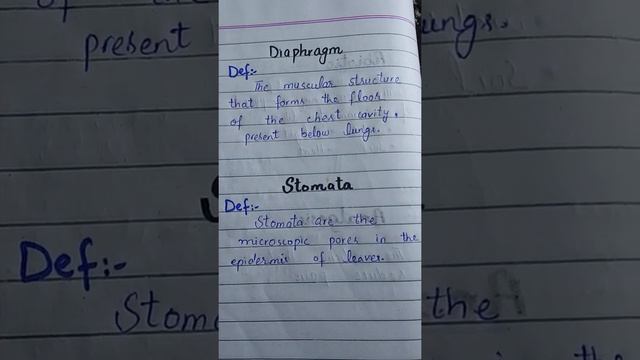 Diaphragm
Def:-
The muscular structure
that forms the floor
of the chest cavity.
present below lungs.
Stomata
Def:-
Stomata are the
microscopic pores in the
epidermis of leaves.
present
ungs.
Def:-
Stom
the